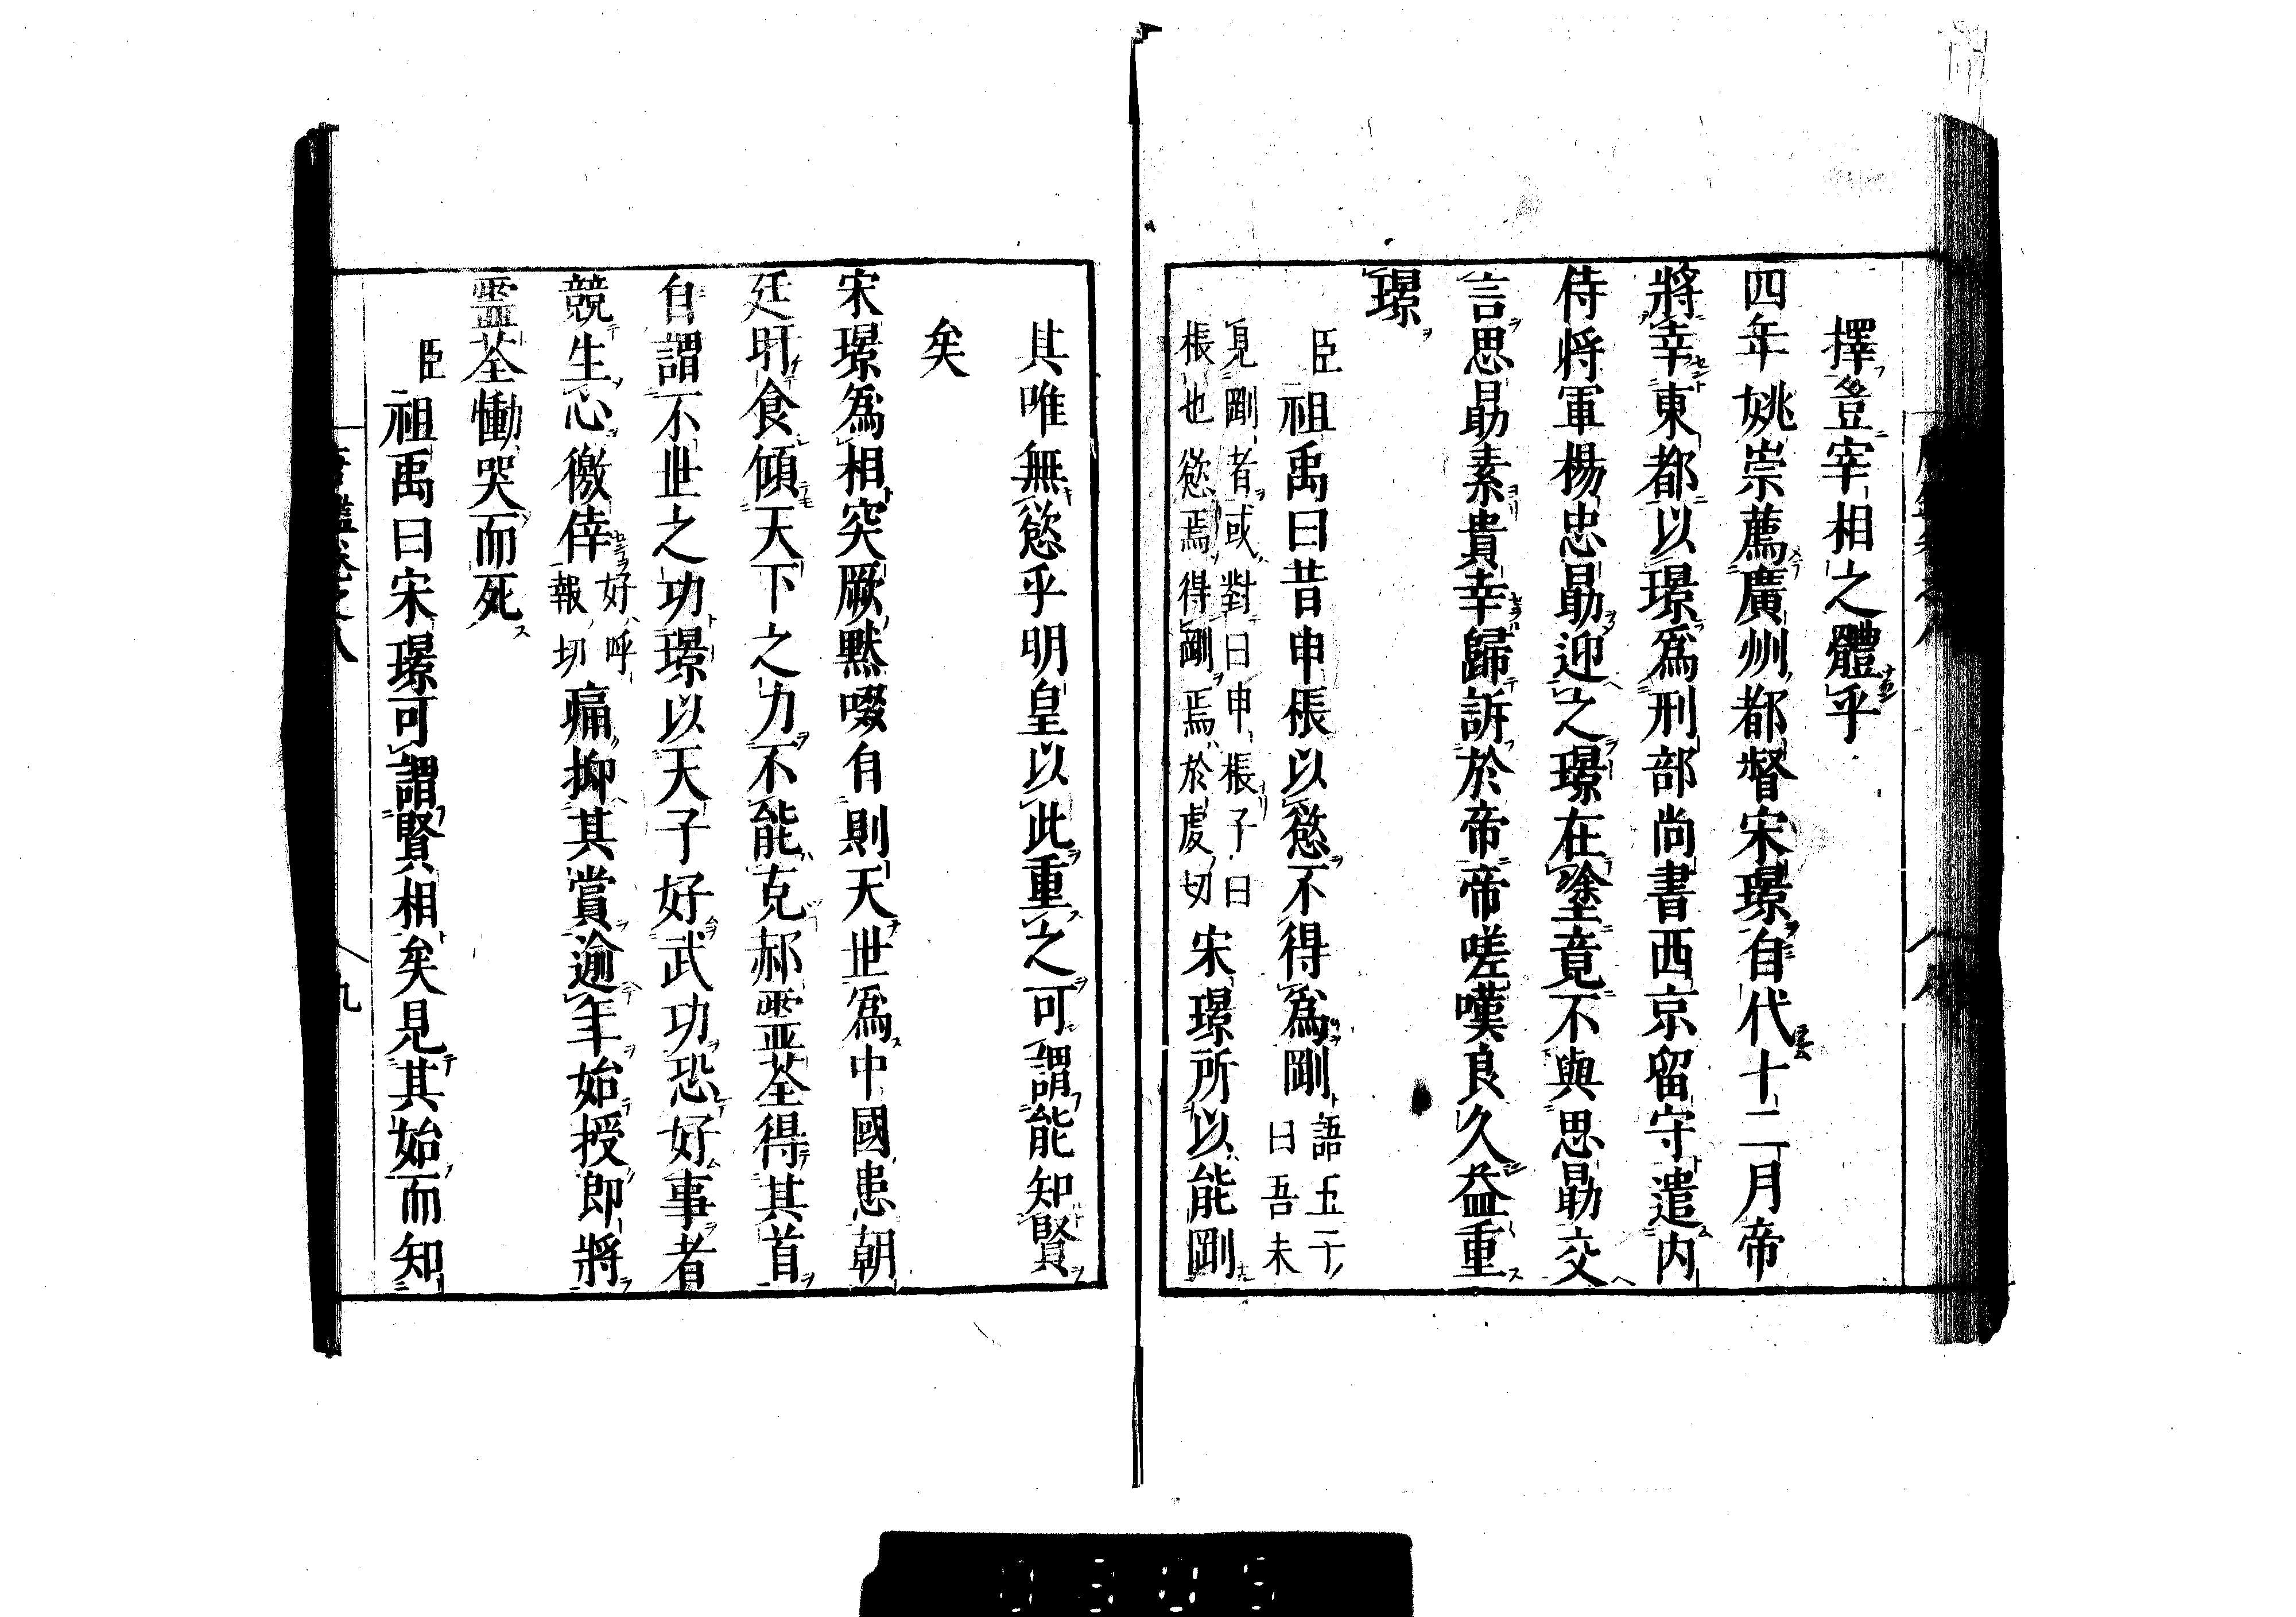 擇登宰相之體乎
四年姚崇薦廣州都督宋璟自代十二月帝
將幸東都以璟爲刑部尚書西京留守遣内
侍将軍楊思勗迎之璟在塗竟不與思勗交
言思勗素貴幸歸訴於帝帝嗟嘆良久益重
璟
臣祖禹曰昔申棖以慾不得爲剛語五子曰吾未
見剛者或對曰申棖子曰
棖也慾焉得剛焉於虔切宋璟所以能剛
其唯無慾乎明皇以此重之可謂能知賢
矣
宋璟爲相突厥黙啜自則天世爲中國患朝
廷旰食傾天下之力不能克郝霊荃得其首
自謂不世之功璟以天子好武功恐好事者
競生心徼倖好呼報切痛抑其賞逾年始授郎將
霊荃慟哭而死
臣祖禹曰宋璟可謂賢相矣見其始而知
九